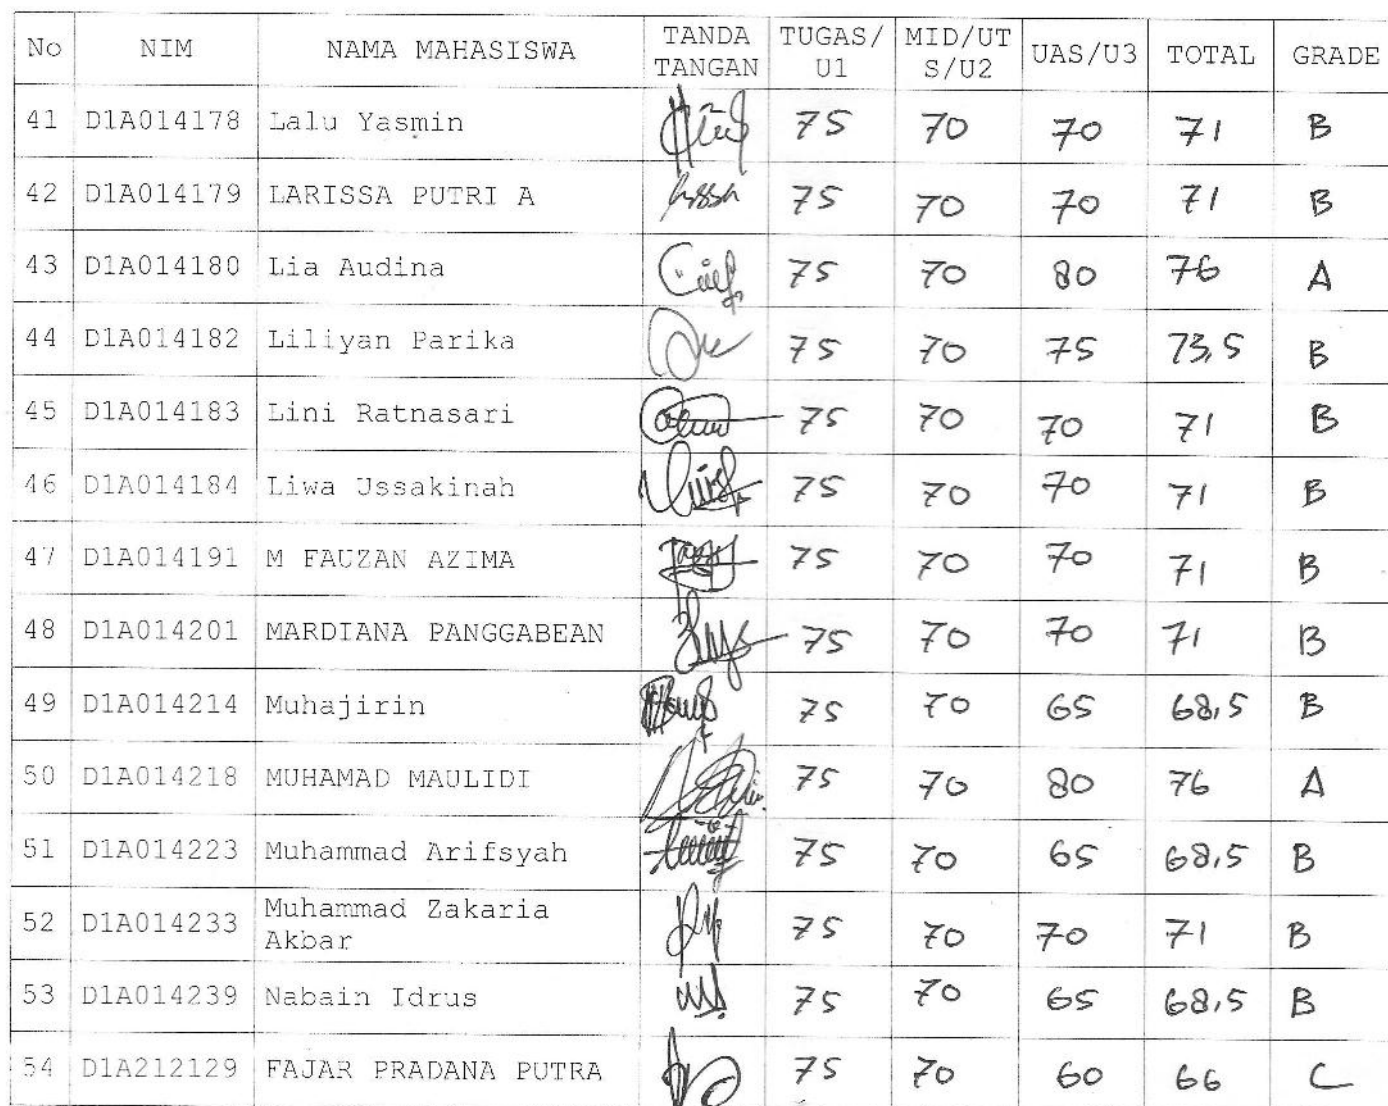 No NIM NAMA MAHASISWA TANDA TANGAN TUGAS/U1 MID/UTS/U2 UAS/U3 TOTAL GRADE
41 D1A014178 Lalu Yasmin 75 70 70 71 B
42 D1A014179 LARISSA PUTRI A 75 70 70 71 B
43 D1A014180 Lia Audina 75 70 80 76 A
44 D1A014182 Liliyan Parika 75 70 75 73,5 B
45 D1A014183 Lini Ratnasari 75 70 70 71 B
46 D1A014184 Liwa Ussakinah 75 70 70 71 B
47 D1A014191 M FAUZAN AZIMA 75 70 70 71 B
48 D1A014201 MARDIANA PANGGABEAN 75 70 70 71 B
49 D1A014214 Muhajirin 75 70 65 68,5 B
50 D1A014218 MUHAMAD MAULIDI 75 70 80 76 A
51 D1A014223 Muhammad Arifsyah 75 70 65 68,5 B
52 D1A014233 Muhammad Zakaria Akbar 75 70 70 71 B
53 D1A014239 Nabain Idrus 75 70 65 68,5 B
54 D1A212129 FAJAR PRADANA PUTRA 75 70 60 66 C